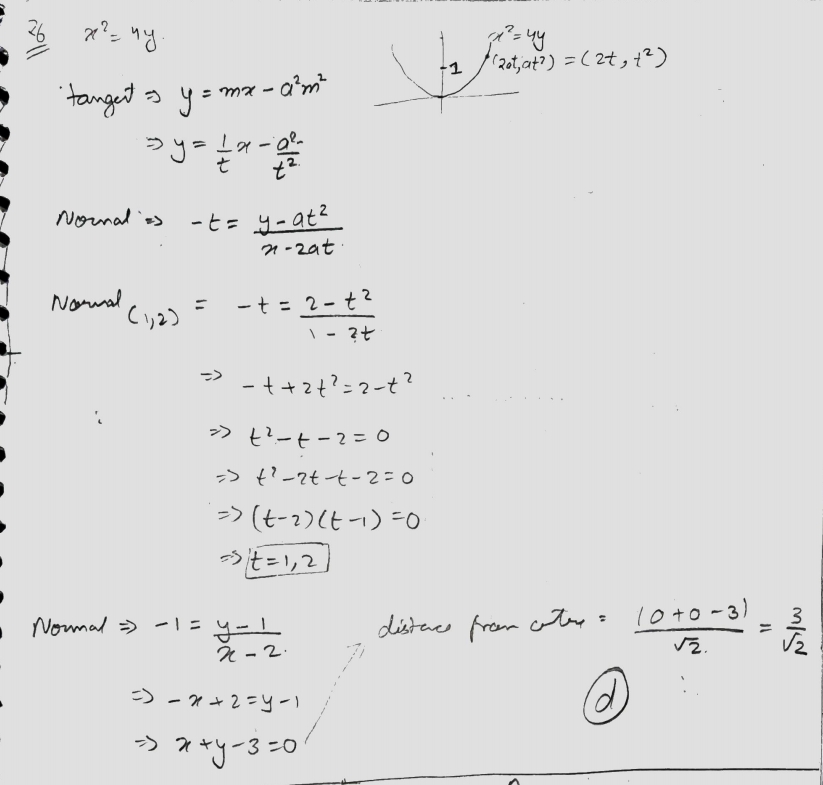 26 x² = 4y.
x² = 4y
(2at, at²) = (2t, t²)
1
tangent ⇒ y = mx - a²m²
⇒ y = 1/t x - a²/t²
Normal ⇒ -t = (y - at²)/(x - 2at)
Normal (1,2) = -t = (2 - t²)/(1 - 2t)
⇒ -t + 2t² = 2 - t²
⇒ t² - t - 2 = 0
⇒ t² - 2t - t - 2 = 0
⇒ (t - 2)(t - 1) = 0
⇒ t = 1, 2
Normal ⇒ -1 = (y - 1)/(x - 2)
distance from = |0 + 0 - 3|/√2 = 3/√2
⇒ -x + 2 = y - 1
(d)
⇒ x + y - 3 = 0